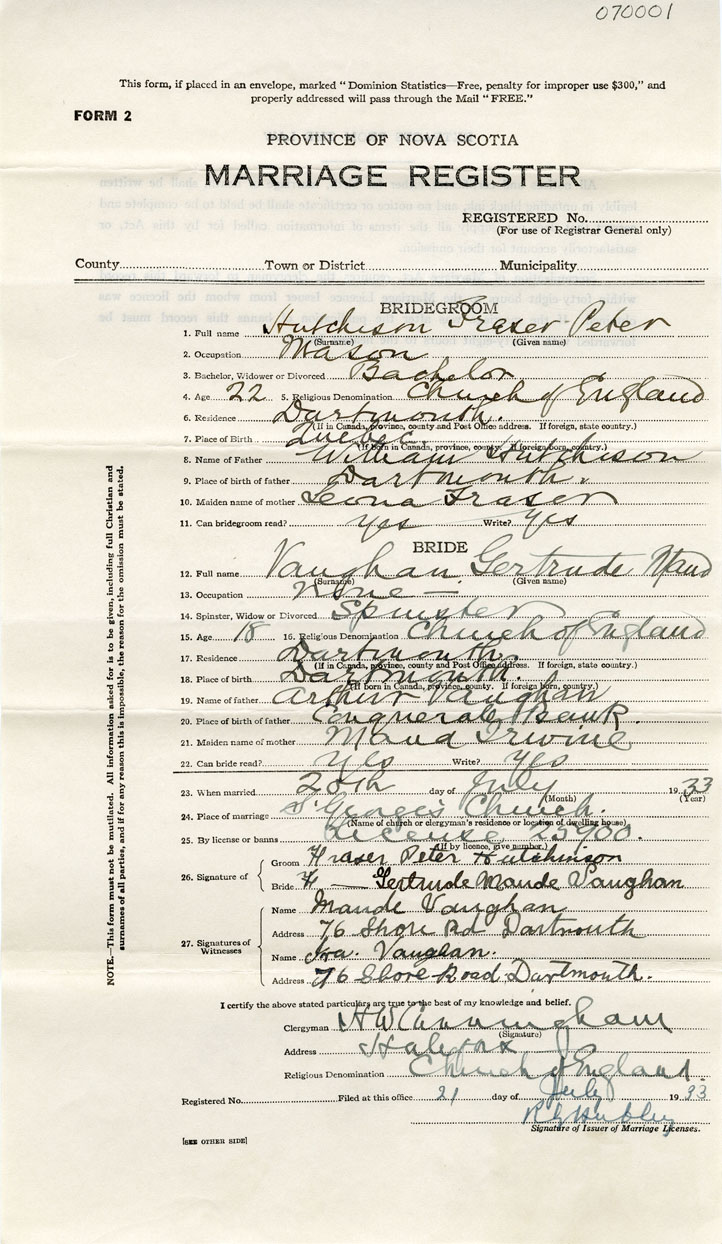 070001
This form, if placed in an envelope, marked "Dominion Statistics—Free, penalty for improper use $300," and
properly addressed will pass through the Mail "FREE."
FORM 2
PROVINCE OF NOVA SCOTIA
MARRIAGE REGISTER
REGISTERED No.
(For use of Registrar General only)
County Town or District Municipality
BRIDEGROOM
1. Full name Hutchison Fraser Peter
(Surname) (Given name)
2. Occupation Mason
3. Bachelor, Widower or Divorced Bachelor
4. Age 22 5. Religious Denomination Church of England
6. Residence Dartmouth.
(If in Canada, province, county and Post Office address. If foreign, state country.)
7. Place of Birth Quebec.
(If born in Canada, province, county. If foreign born, country.)
8. Name of Father William Hutchison
9. Place of birth of father Dartmouth.
10. Maiden name of mother Leona Fraser
11. Can bridegroom read? Yes Write? Yes
BRIDE
12. Full name Vaughan Gertrude Maud
(Surname) (Given name)
13. Occupation None —
14. Spinster, Widow or Divorced Spinster
15. Age 18 16. Religious Denomination Church of England
17. Residence Dartmouth.
(If in Canada, province, county and Post Office address. If foreign, state country.)
18. Place of birth Dartmouth.
(If born in Canada, province, county. If foreign born, country.)
19. Name of father Arthur Vaughan
20. Place of birth of father Bank.
21. Maiden name of mother Maud Irwine
22. Can bride read? Yes Write? Yes
23. When married 20th day of July 1933
(Month) (Year)
24. Place of marriage St George's Church.
(Name of church or clergyman's residence or location of dwelling house)
25. By license or banns License 25900.
(If by licence, give number.)
26. Signature of
Groom Fraser Peter Hutchinson
Bride — Gertrude Maude Vaughan
27. Signatures of Witnesses
Name Maude Vaughan
Address 76 Shore Rd Dartmouth
Name Ira. Vaughan.
Address 76 Shore Road Dartmouth.
I certify the above stated particulars are true to the best of my knowledge and belief.
Clergyman H W Cunningham
(Signature)
Address Halifax
Religious Denomination Church of England.
Registered No. Filed at this office 21 day of July 1933
Hubley
Signature of Issuer of Marriage Licenses.
[SEE OTHER SIDE]
NOTE.—This form must not be mutilated. All information asked for is to be given, including full Christian and
surnames of all parties, and if for any reason this is impossible, the reason for the omission must be stated.